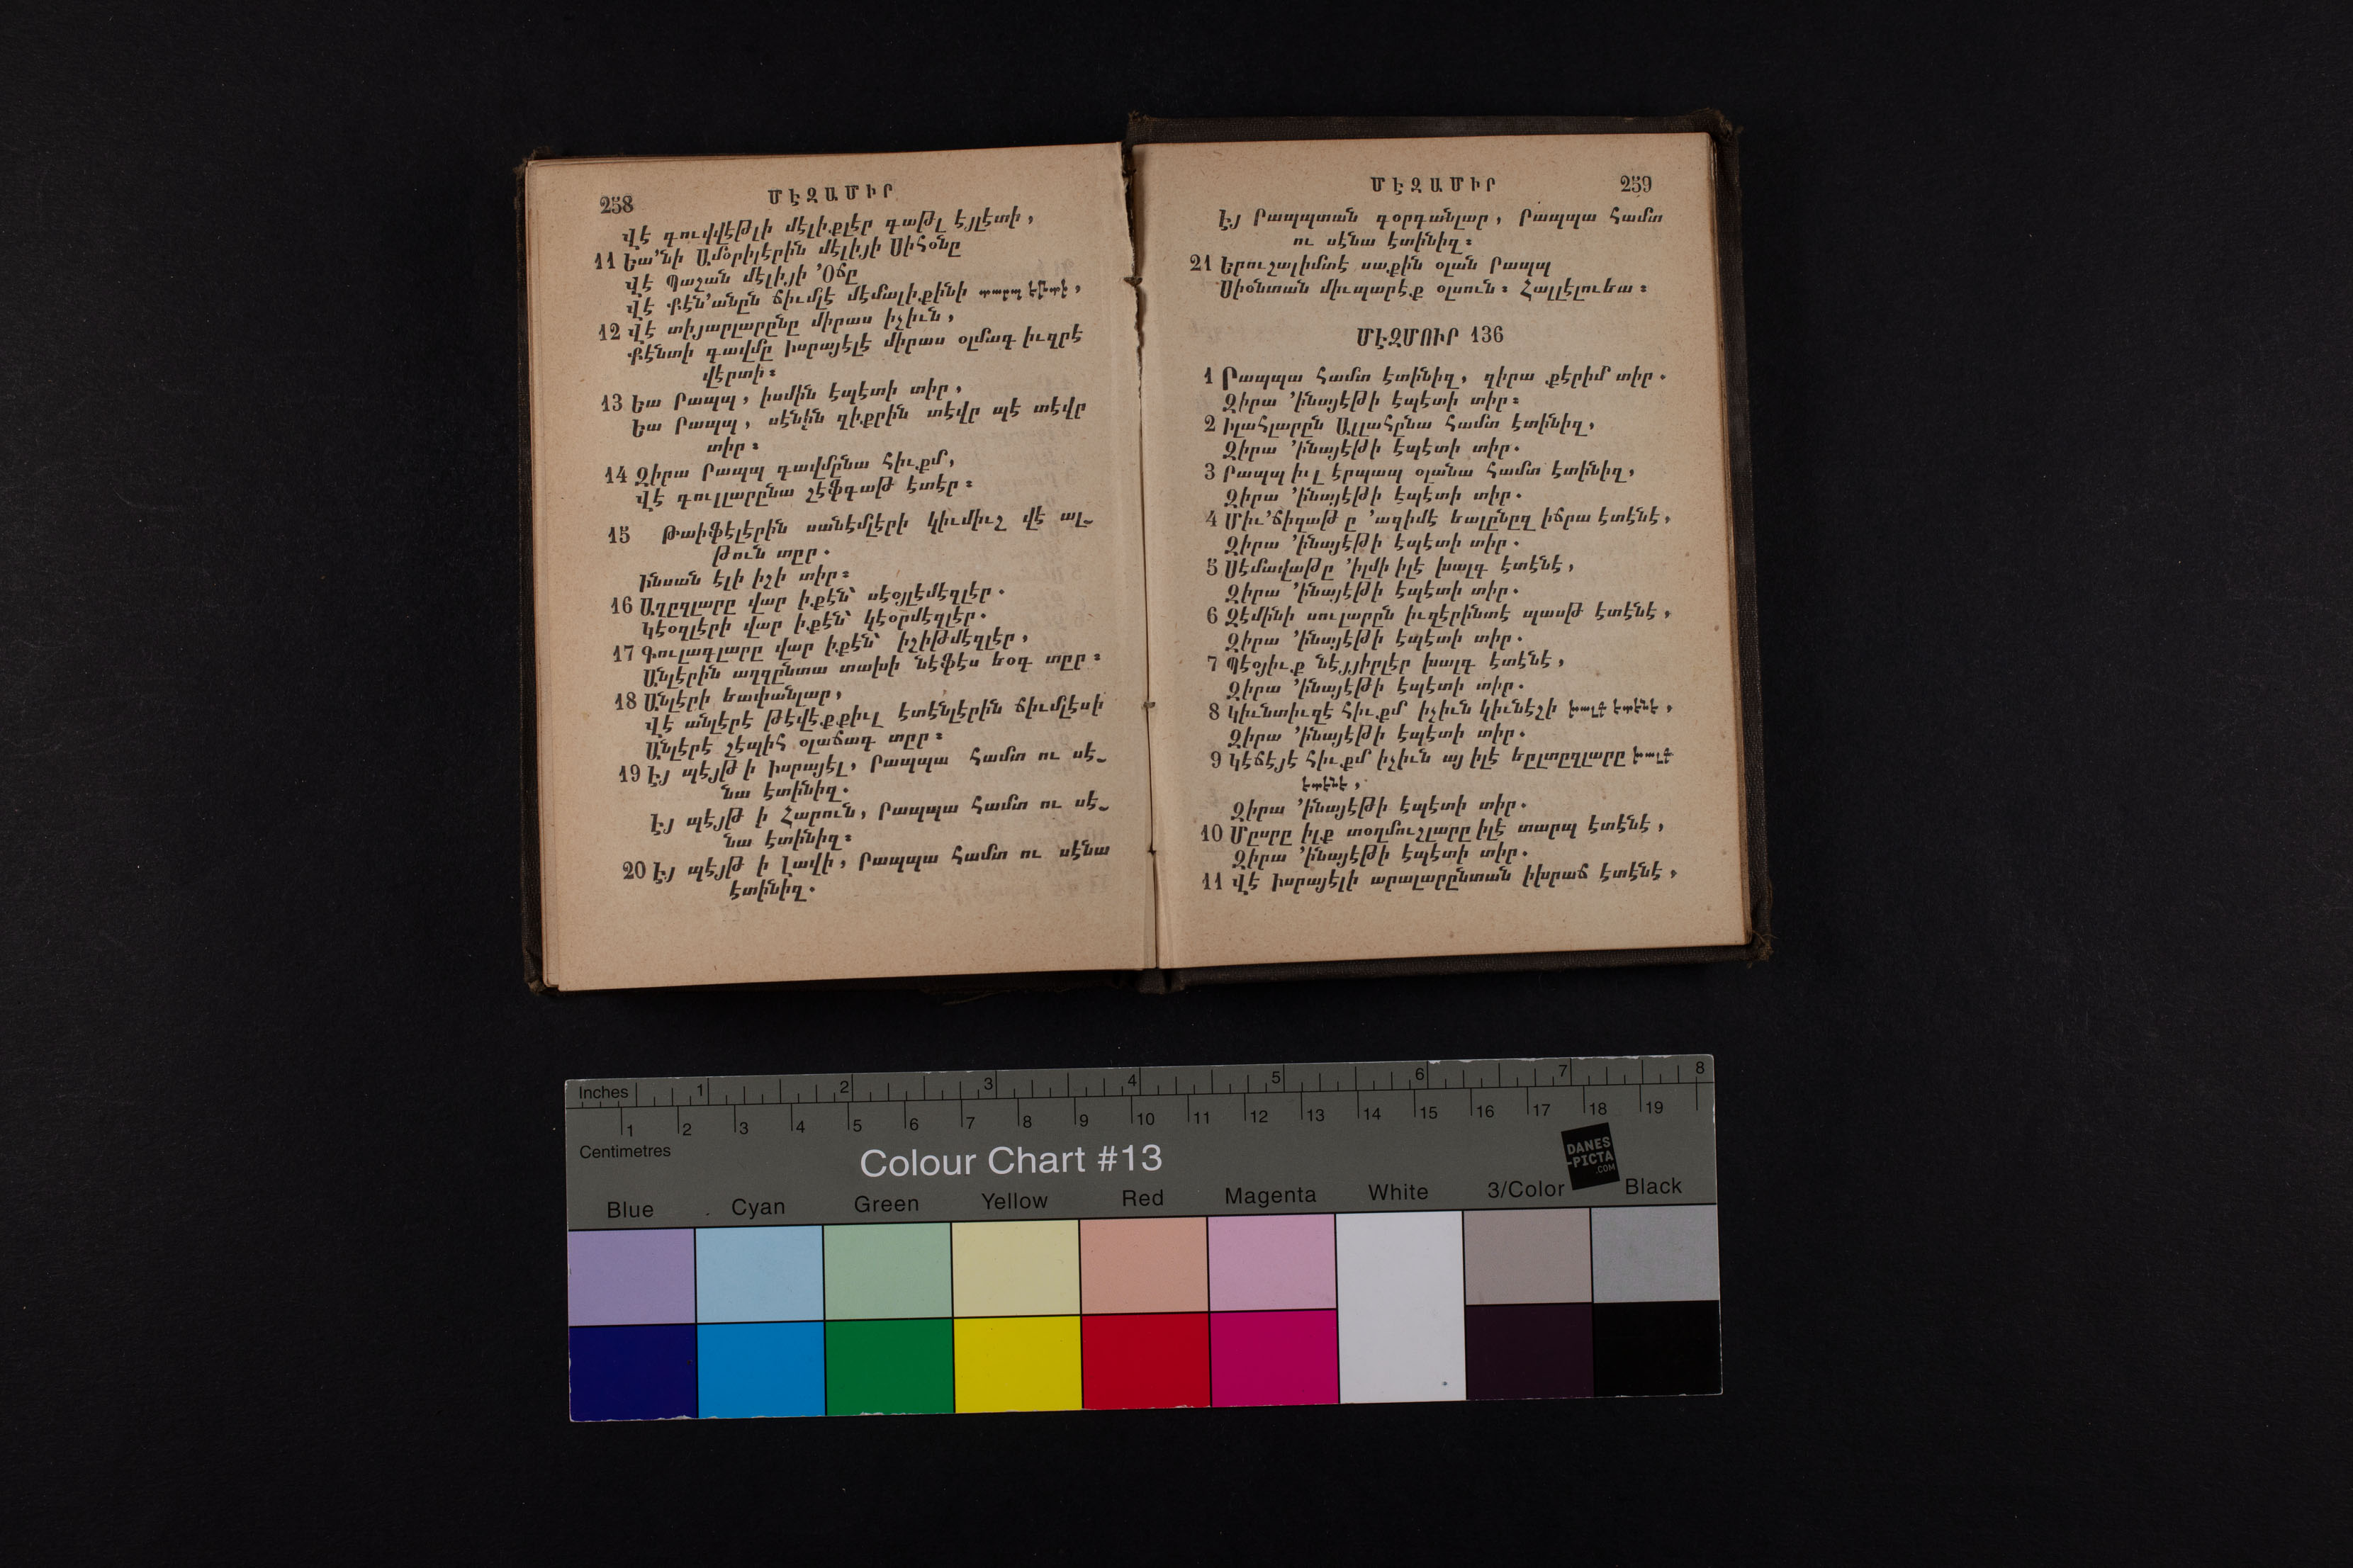 258
ՄԷԶԱՄԻՐ
վէ գուվվէթլի մէլիքլէր գաթլ էյլէտի,
11 Եա՚նի Ամօրիլէրին մէլիյի Սիհօնը
վէ Պաշան մէլիյի ՚Օճը
վէ Քէն՚անըն ճիւմլէ մէմալիքինի տարպ էյլէտի,
12 Վէ տիյարլարընը միրաս իչիւն,
Քէնտի գավմը Իսրայէլէ միրաս օլմագ իւզրէ
վէրտի։
13 Եա Րապպ, իսմին էպէտի տիր,
Եա Րապպ, սէնին զիքրին տէվր պէ տէվր
տիր։
14 Զիրա Րապպ գավմընա հիւքմ,
Վէ գուլլարընա շէֆգաթ էտէր։
15 Թաիֆէլէրին սանէմլէրի կիւմիւշ վէ ալ-
թուն տըր.
Ինսան էլի իչի տիր։
16 Աղըզլարը վար իքէն՝ սէօյլէմէզլէր.
Կէօզլէրի վար իքէն՝ կէօրմէզլէր.
17 Գուլագլարը վար իքէն՝ իշիթմէզլէր,
Անլէրին աղզընտա տախի նէֆէս եօգ տըր։
18 Անլէրի եափանլար,
Վէ անլէրէ թէվէքքիւլ էտէնլէրին ճիւմլէսի
Անլէրէ շէպիհ օլաճագ տըր։
19 Էյ պէյթ ի Իսրայէլ, Րապպա համտ ու սէ-
նա էտինիզ.
Էյ պէյթ ի Հարուն, Րապպա համտ ու սէ-
նա էտինիզ։
20 Էյ պէյթ ի Լավի, Րապպա համտ ու սէնա
էտինիզ.
ՄԷԶԱՄԻՐ
259
Էյ Րապպտան գօրգանլար, Րապպա համտ
ու սէնա էտինիզ։
21 Երուշալիմտէ սաքին օլան Րապպ
Սիօնտան միւպարէք օլսուն։ Հալլէլուեա։
ՄԷԶՄՈՒՐ 136
1 Րապպա համտ էտինիզ, զիրա քէրիմ տիր.
Զիրա ՚ինայէթի էպէտի տիր։
2 Իլահլարըն Ալլահընա համտ էտինիզ,
Զիրա ՚ինայէթի էպէտի տիր.
3 Րապպ իւլ էրպապ օլանա համտ էտինիզ,
Զիրա ՚ինայէթի էպէտի տիր.
4 Միւ՚ճիզաթ ը ՚ազիմէ եալընըզ իճրա էտէնէ,
Զիրա ՚ինայէթի էպէտի տիր.
5 Սէմավաթը ՚իլմի իլէ խալգ էտէնէ,
Զիրա ՚ինայէթի էպէտի տիր.
6 Զէմինի սուլարըն իւզէրինտէ պասթ էտէնէ,
Զիրա ՚ինայէթի էպէտի տիր.
7 Պէօյիւք նէյյիրլէր խալգ էտէնէ,
Զիրա ՚ինայէթի էպէտի տիր.
8 Կիւնտիւզէ հիւքմ իչիւն կիւնէշի խալգ էտէնէ,
Զիրա ՚ինայէթի էպէտի տիր.
9 Կէճէյէ հիւքմ իչիւն այ իլէ եըլտըզլարը խալգ
էտէնէ,
Զիրա ՚ինայէթի էպէտի տիր.
10 Մըսրը իլք տօղմուշլարը իլէ տարպ էտէնէ,
Զիրա ՚ինայէթի էպէտի տիր.
11 Վէ Իսրայէլի արալարընտան իխրաճ էտէնէ,
Inches 1 2 3 4 5 6 7 8
1 2 3 4 5 6 7 8 9 10 11 12 13 14 15 16 17 18 19
Centimetres
Colour Chart #13
DANES
-PICTA
.COM
Blue Cyan Green Yellow Red Magenta White 3/Color Black